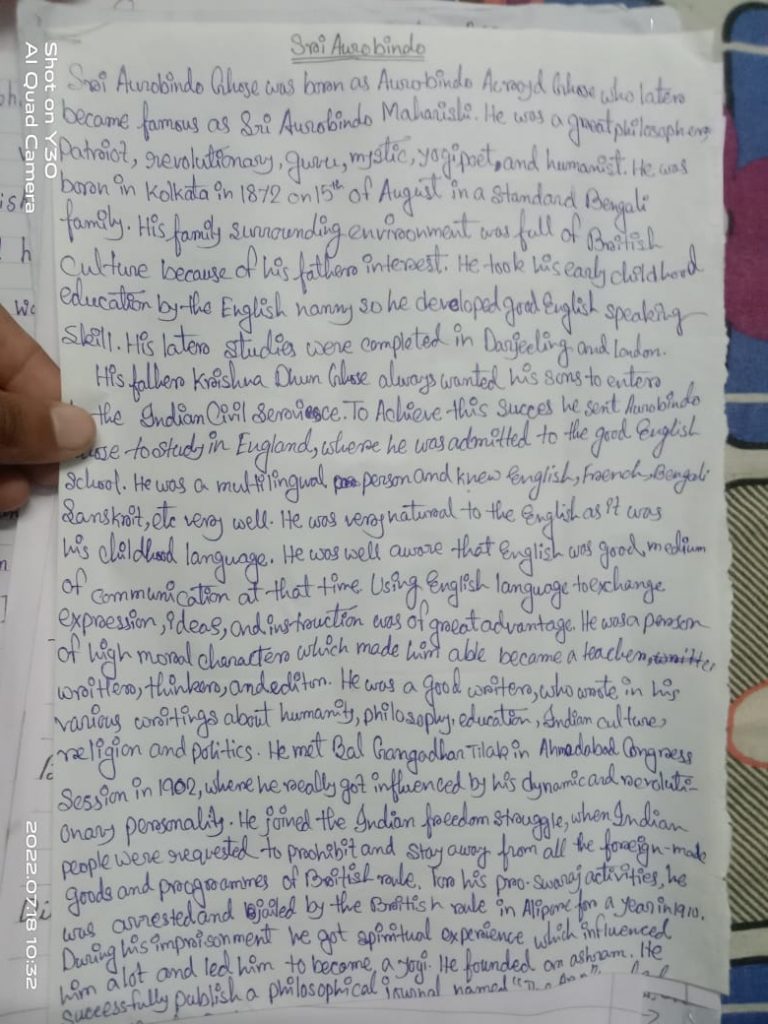 Sri Aurobindo
Sri Aurobindo Ghose was born as Aurobindo Acroyd Ghose who later
became famous as Sri Aurobindo Maharishi. He was a great philosopher,
Patriot, revolutionary, guru, mystic, yogi poet, and humanist. He was
born in Kolkata in 1872 on 15th of August in a standard Bengali
family. His family surrounding environment was full of British
Culture because of his father interest. He took his early childhood
education by the English nanny so he developed good English speaking
Skill. His later studies were completed in Darjeeling and london.
His father Krishna Dhun Ghose always wanted his sons to enter
the Indian Civil Service. To Achieve this succes he sent Aurobindo
to study in England, where he was admitted to the good English
School. He was a multilingual person and knew English, French, Bengali
Sanskrit, etc very well. He was very natural to the English as it was
his childhood language. He was well aware that English was good medium
of communication at that time. Using English language to exchange
expression, ideas, and instruction was of great advantage. He was a person
of high moral character which made him able became a teacher,
writer, thinker, and editon. He was a good writer, who wrote in his
various writings about humanity, philosophy, education, Indian culture,
religion and politics. He met Bal Gangadhar Tilak in Ahmadabad Congress
Session in 1902, where he really got influenced by his dynamic and revoluti-
onary personality. He joined the Indian freedom struggle, when Indian
people were requested to prohibit and stay away from all the foreign-made
goods and programmes of British rule. For his pro-swaraj activities, he
was arrested and jailed by the British rule in Alipore for a year in 1910.
During his imprisonment he got spiritual experience which influenced
him a lot and led him to become a yogi. He founded an ashram. He
Successfully publish a philosophical journal named
Shot on Y30
AI Quad Camera
2022.07.18 10:32